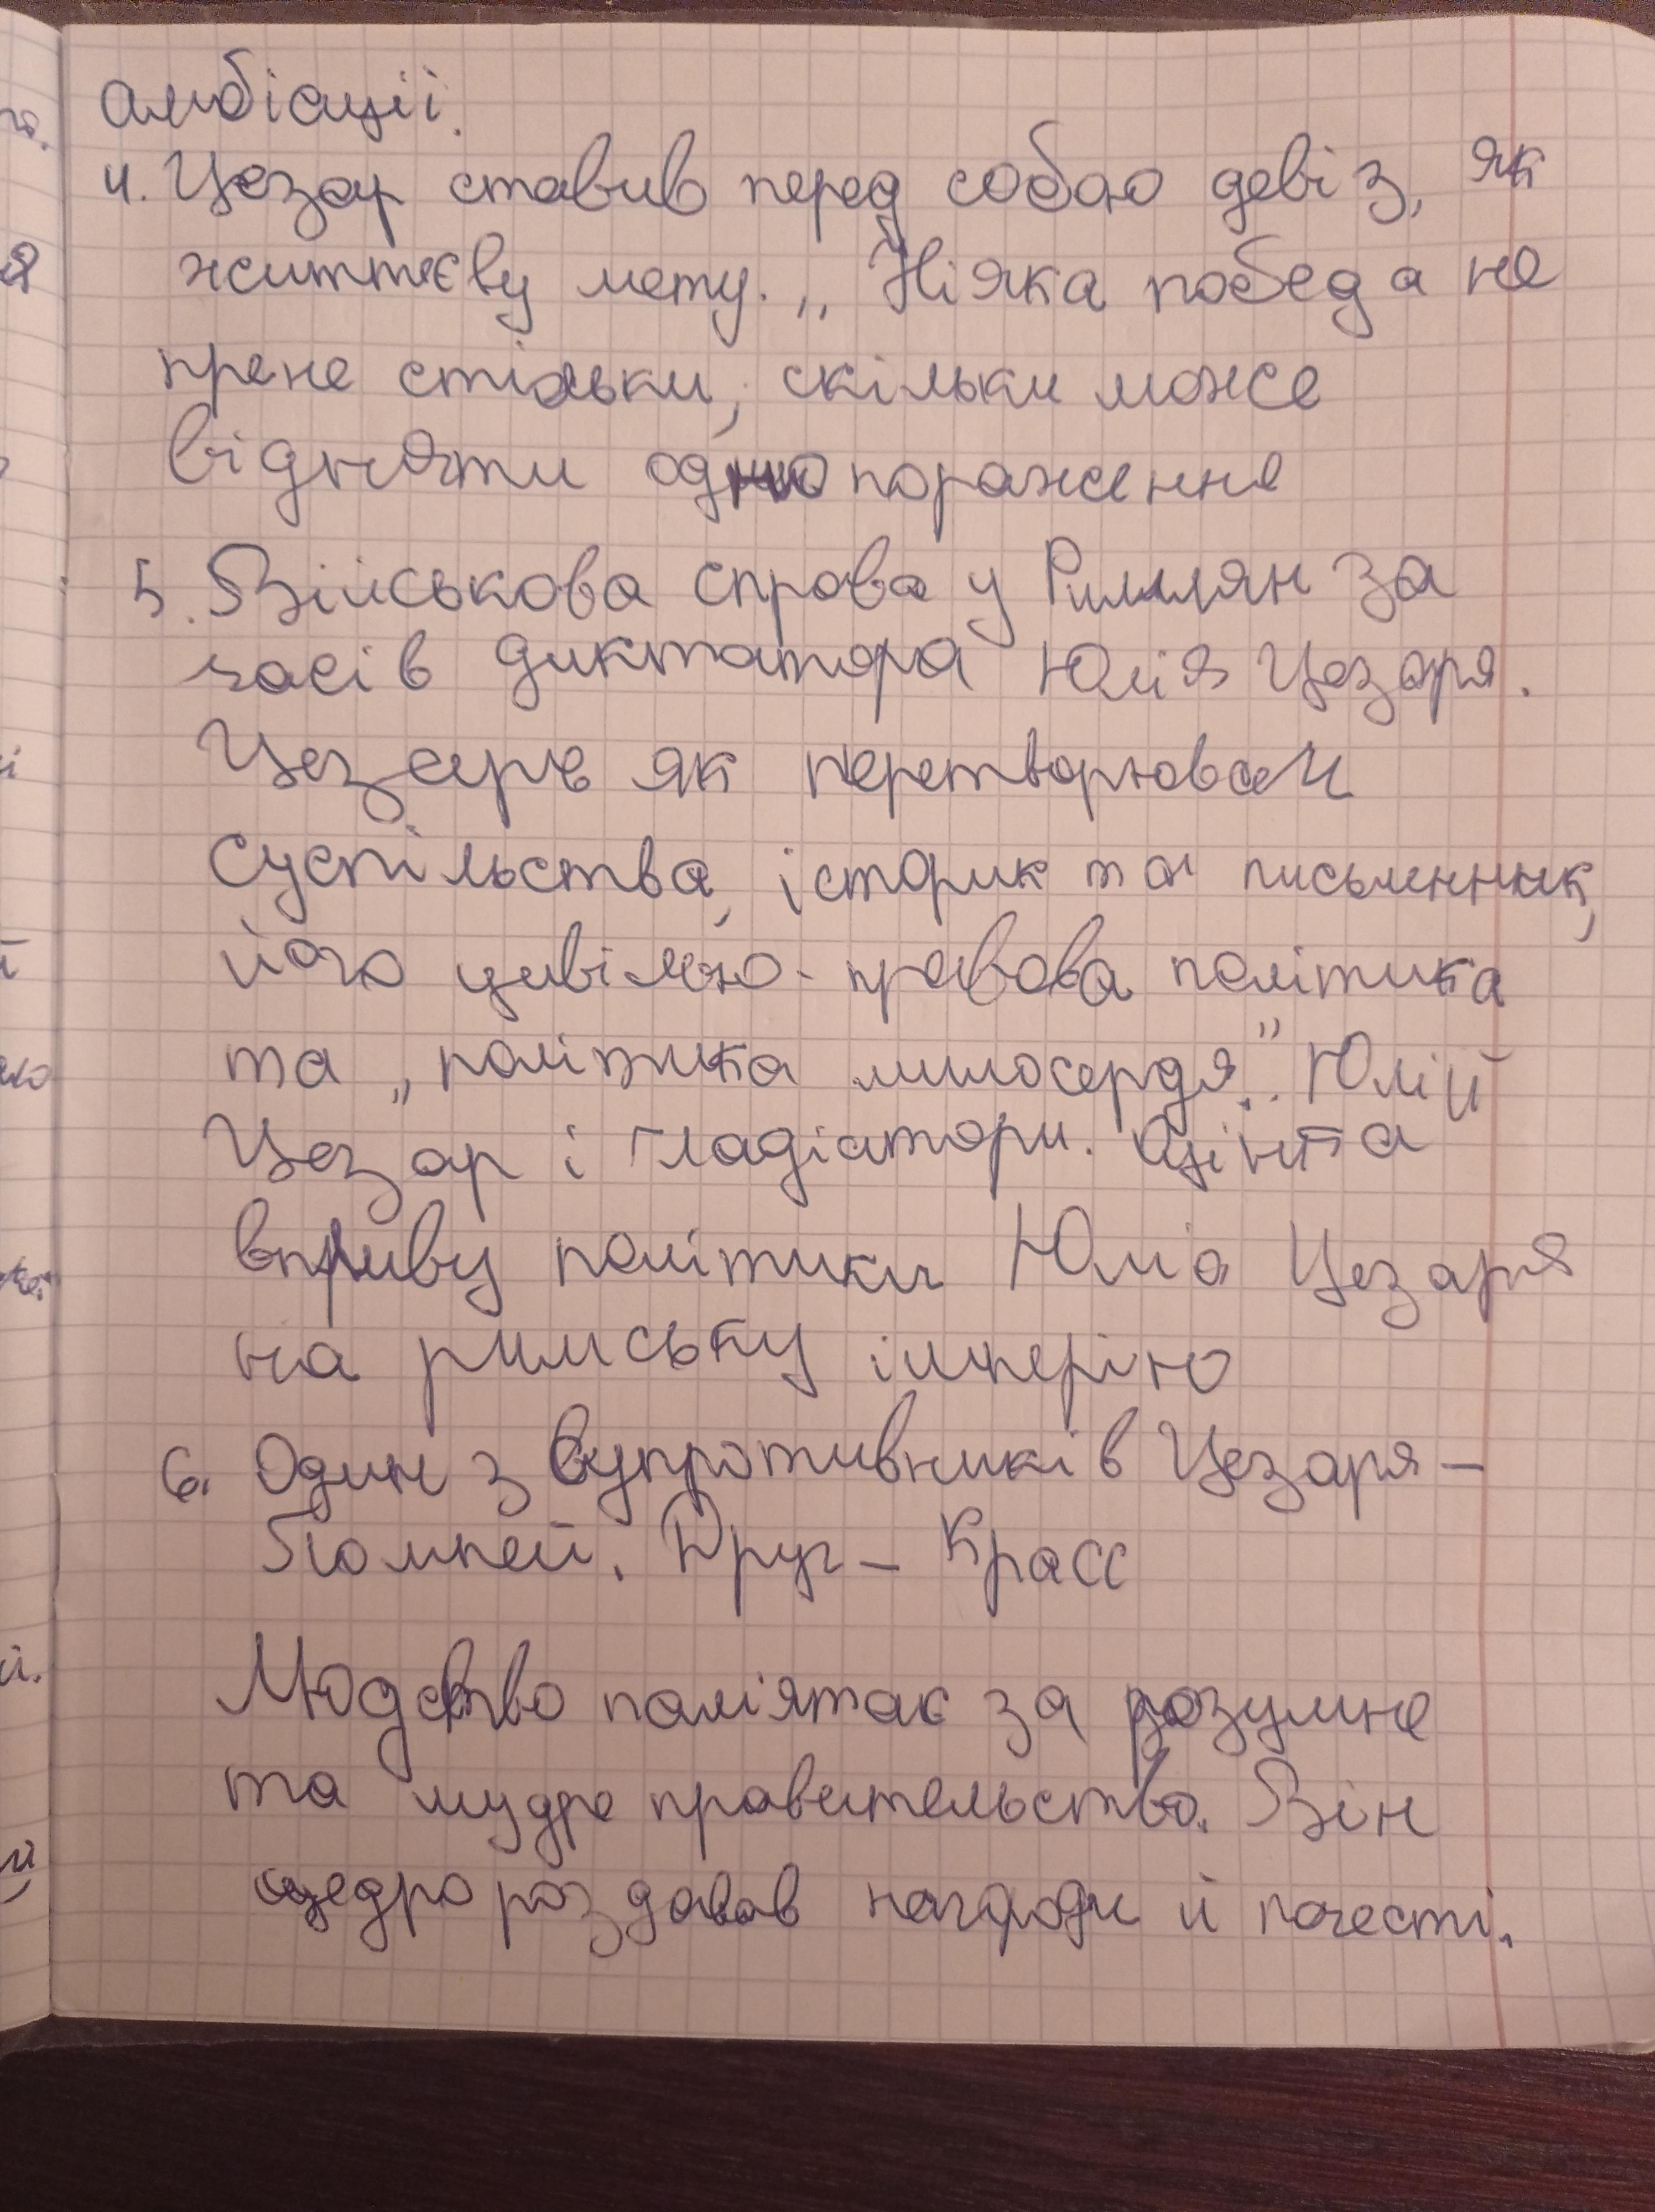 амбіації.
4. Цезар ставив перед собою девіз, як
життєву мету. „Ніяка победа не
прене стільки, скільки може
відняти одно пораження
5. Військова справа у Римлян за
часів диктатора Юлія Цезаря.
Цезарь як перетворювач
суспільства, історик та письменник,
його цивільно-правова політика
та „політика милосердя”. Юлій
Цезар і гладіатори. Оцінта
впливу політики Юлія Цезаря
на римську імперію
6. Один з супротивників Цезаря –
Помпей. Друг – Красс
Людство пам'ятає за розумне
та мудре правительство. Він
щедро роздавав нагороди й почесті.